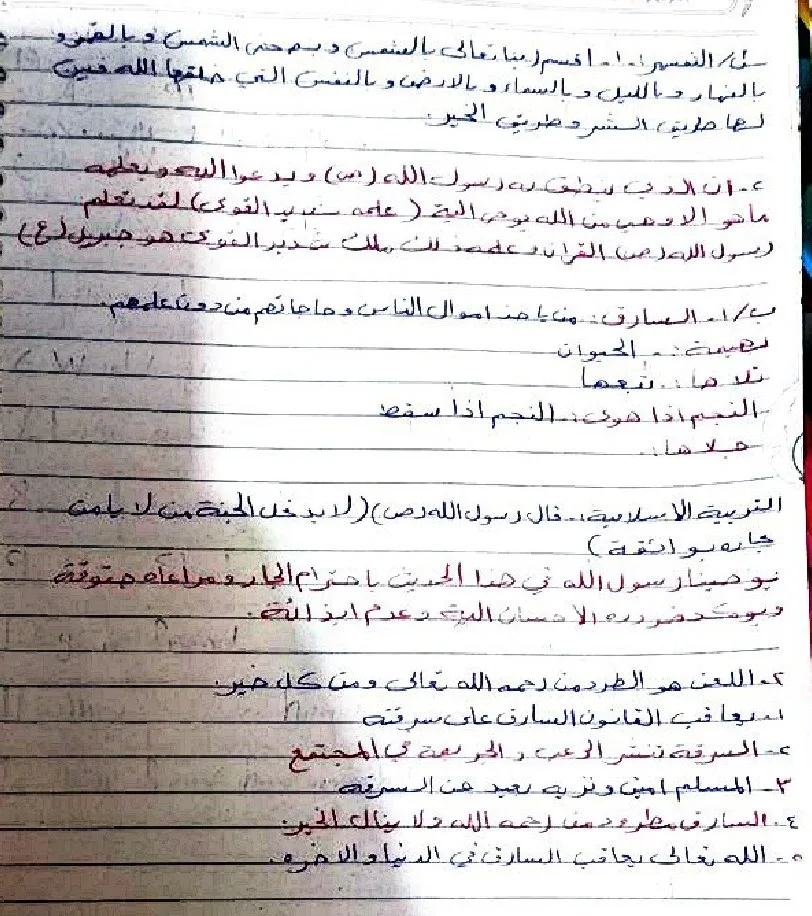 س١/ التفسير:- ١- اقسم ربنا تعالى بالشمس وبضحى الشمس وبالقمر و
بالنهار وبالليل وبالسماء وبالارض وبالنفس التي خلقها الله فبين
لها طريق الشر وطريق الخير.
٢- ان الذي ينطق به رسول الله (ص) ويدعوا اليه ويعلمه
ماهو الا وحي من الله يوحى الية (علمه شديد القوى) لقد تعلم
رسول الله (ص) القران وعلمه ذلك ملك شديد القوى هو جبريل (ع)
ب/١- السارق:- من ياخذ اموال الناس وحاجاتهم من دون علمهم.
بهيمة:- الحيوان
تلاها:- تبعها
النجم اذا هوى:- النجم اذا سقط
جلاها:-
التربية الاسلامية:- قال رسول الله (ص) (لا يدخل الجنة من لا يامن
جاره بوائقة)
يوصينا رسول الله في هذا الحديث باحترام الجار ومراعاه حقوقة
ويوكد ضروره الاحسان الية وعدم ايذائة.
٢- اللعن هو الطرد من رحمه الله تعالى ومن كل خير.
١- يعاقب القانون السارق على سرقته
٢- السرقة تنشر الرعب والجريمة في المجتمع
٣- المسلم امين ونزيه بعيد عن السرقه
٤- السارق مطرود من رحمه الله ولا ينال الخير.
٥- الله تعالى يعاقب السارق في الدنيا والاخره.